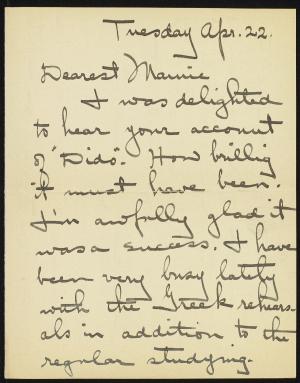 Tuesday Apr. 22.
Dearest Mamie
I was delighted
to hear your account
of "Dido". How brillig
it must have been.
I'm awfully glad it
was a success. I have
been very busy lately
with the Greek rehears-
als in addition to the
regular studying.